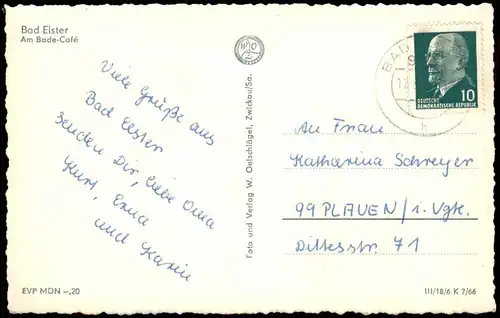 Bad Elster
Am Bade-Café
Viele Grüße aus
Bad Elster
senden Dir, liebe Oma
Kurt, Erna
und Karin
EVP MDN –,20
Foto und Verlag W. Oelschlägel, Zwickau/Sa.
BAD
10
DEUTSCHE
DEMOKRATISCHE REPUBLIK
An Frau
Katharina Schreyer
99 PLAUEN / i. Vgtl.
Dittesstr. 71
III/18/6 K 7/66